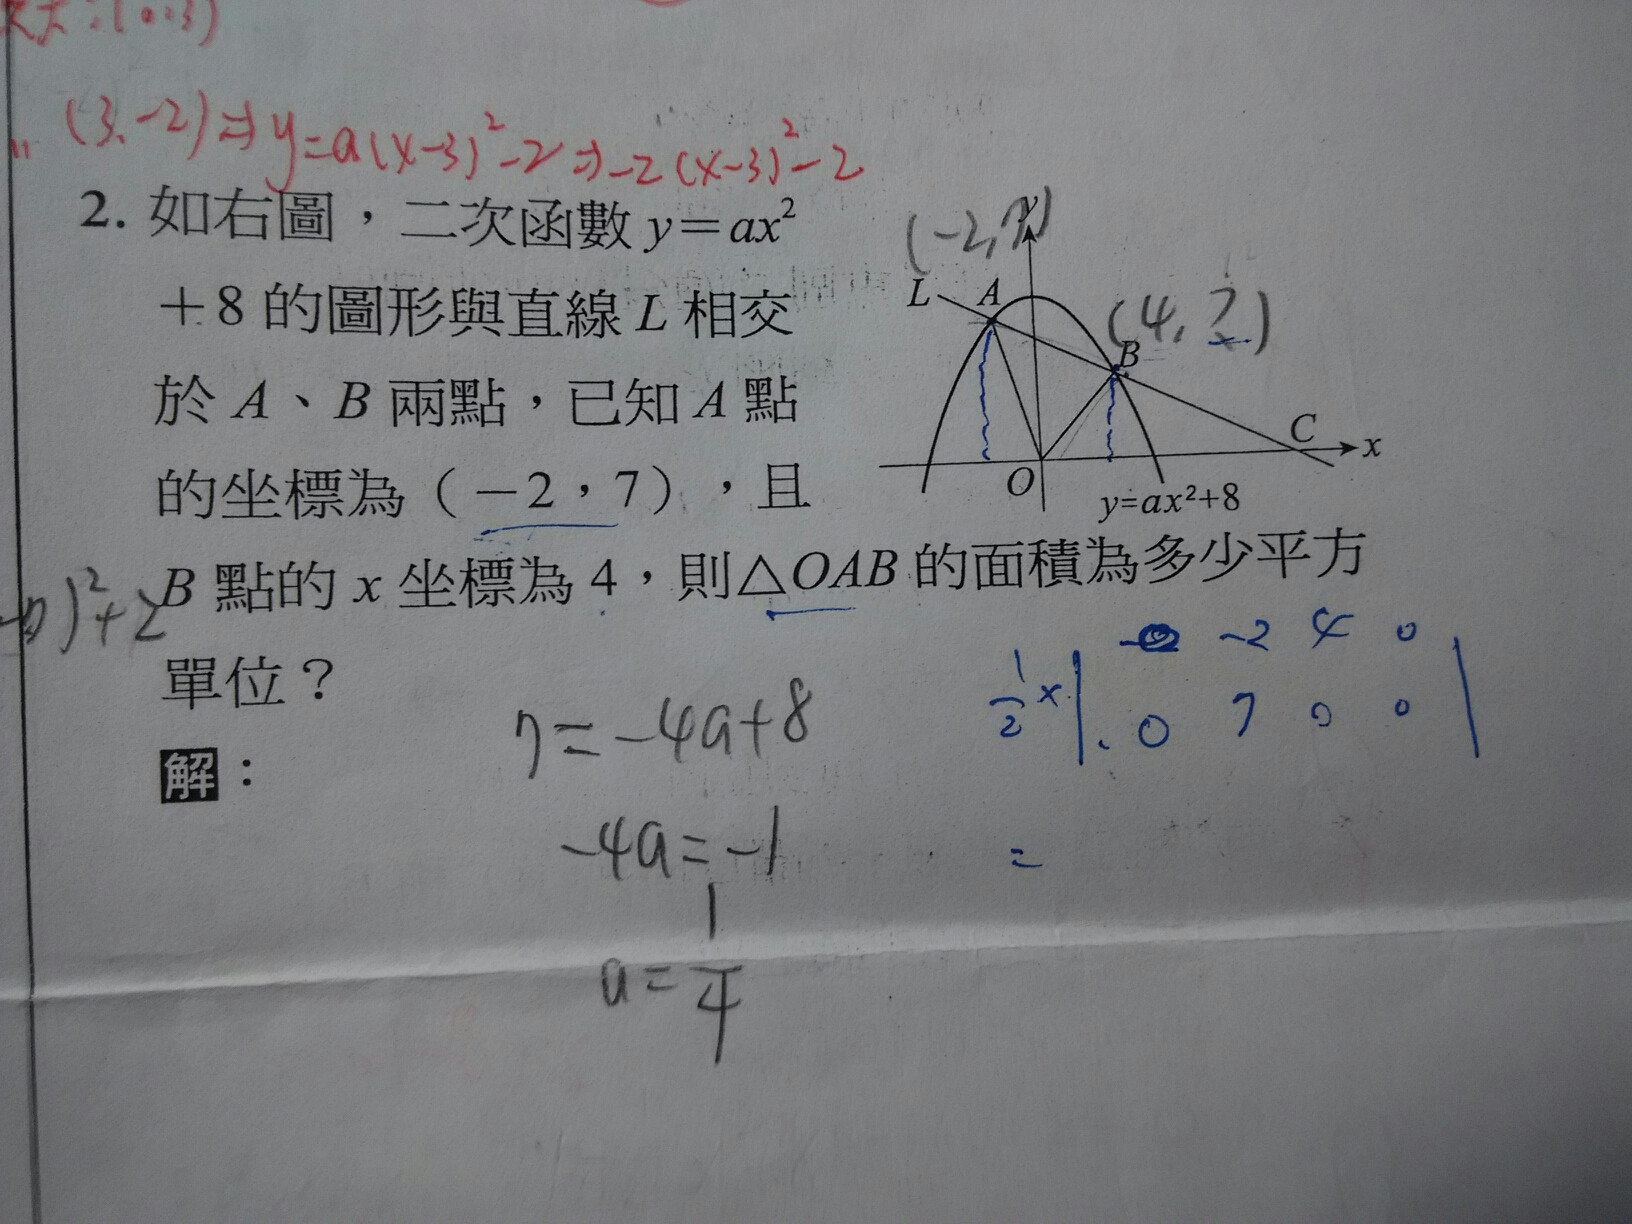 (3,-2)⇒y=a(x-3)²-2⇒-2(x-3)²-2
2. 如右圖，二次函數 y=ax²
+8 的圖形與直線 L 相交
於 A、B 兩點，已知 A 點
的坐標為（-2，7），且
B 點的 x 坐標為 4，則△OAB 的面積為多少平方
單位？
解：
(-2,7)
y
L
A
(4, ?)
B
C
x
O
y=ax²+8
)²+2
7=-4a+8
-4a=-1
a=1/4
1/2 × | 0 -2 4 0
0 7 0 0 |
=